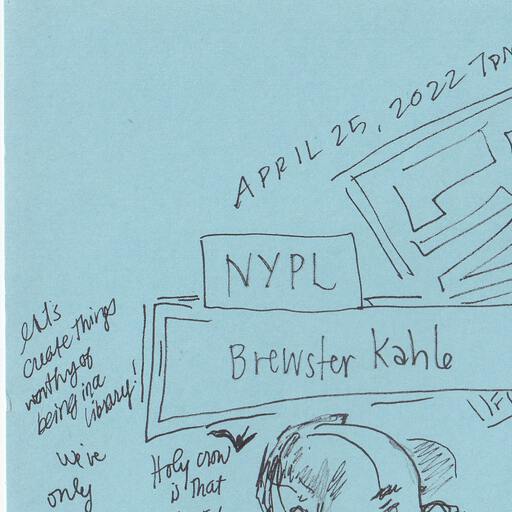 APRIL 25, 2022 7PM
NYPL
Brewster Kahle
let's
create things
worthy of
being in a
library!
We've
only
Holy crow
is that